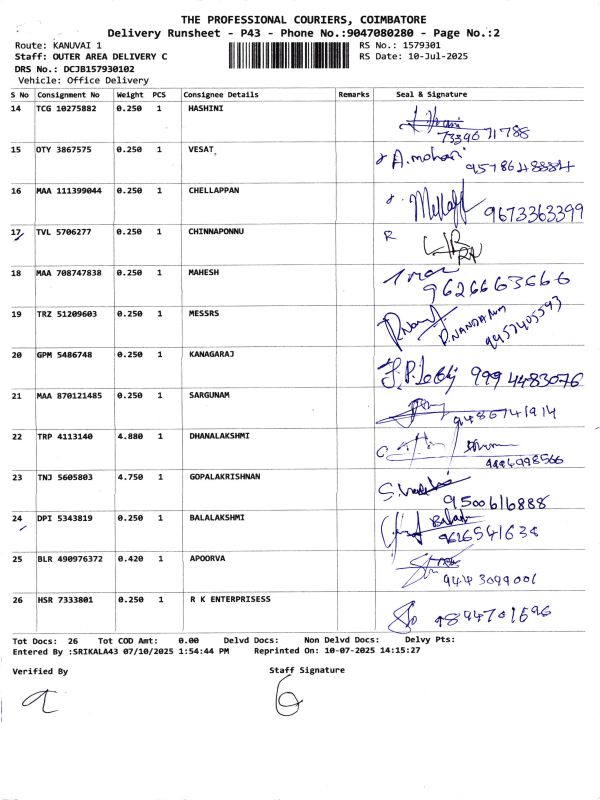 THE PROFESSIONAL COURIERS, COIMBATORE
Delivery Runsheet - P43 - Phone No.:9047080280 - Page No.:2
Route: KANUVAI 1 RS No.: 1579301
Staff: OUTER AREA DELIVERY C RS Date: 10-Jul-2025
DRS No.: DCJB157930102
Vehicle: Office Delivery
S No Consignment No Weight PCS Consignee Details Remarks Seal & Signature
14 TCG 10275882 0.250 1 HASHINI
7339671788
15 OTY 3867575 0.250 1 VESAT A. mohan
9578648884
16 MAA 111399044 0.250 1 CHELLAPPAN 9673363399
17 TVL 5706277 0.250 1 CHINNAPONNU R
18 MAA 708747838 0.250 1 MAHESH
9626663666
19 TRZ 51209603 0.250 1 MESSRS
20 GPM 5486748 0.250 1 KANAGARAJ 9994483076
21 MAA 870121485 0.250 1 SARGUNAM
9486741914
22 TRP 4113140 4.880 1 DHANALAKSHMI
23 TNJ 5605803 4.750 1 GOPALAKRISHNAN
9500616888
24 DPI 5343819 0.250 1 BALALAKSHMI
9626541638
25 BLR 490976372 0.420 1 APOORVA
9443099001
26 HSR 7333801 0.250 1 R K ENTERPRISESS 9894701696
Tot Docs: 26 Tot COD Amt: 0.00 Delvd Docs: Non Delvd Docs: Delvy Pts:
Entered By :SRIKALA43 07/10/2025 1:54:44 PM Reprinted On: 10-07-2025 14:15:27
Verified By Staff Signature